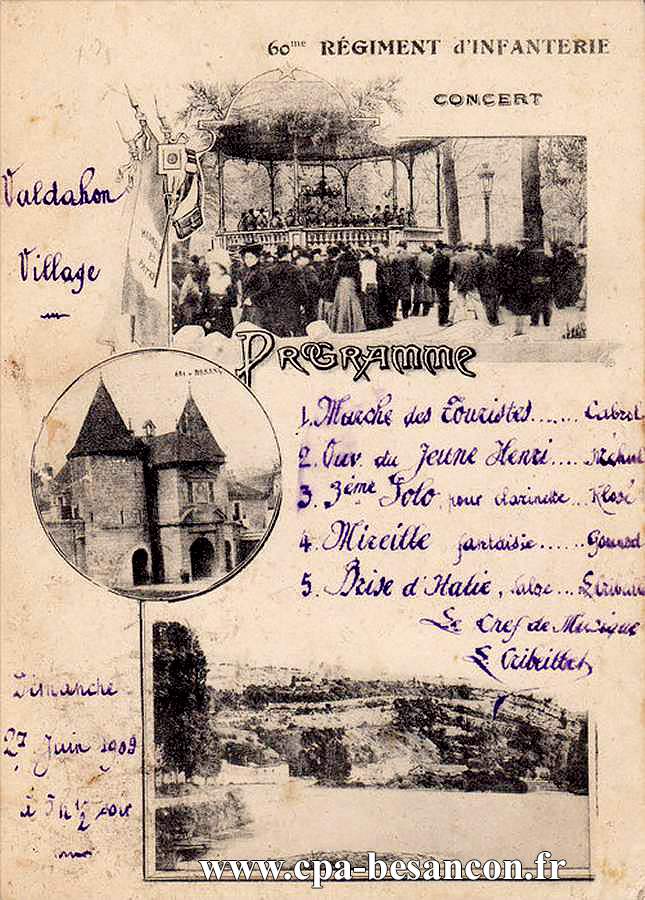 60me RÉGIMENT d'INFANTERIE
CONCERT
Valdahon
Village
PROGRAMME
1. Marche des Touristes...... Cabrol
2. Ouv. du Jeune Henri.... Méhul
3. 3ème Solo, pour clarinette... Klosé
4. Mireille fantaisie...... Gounod
5. Brise d'Italie, valse...
Le Chef de Musique
Dimanche
27 Juin 1909
à 5h 1/2 soir
www.cpa-besancon.fr